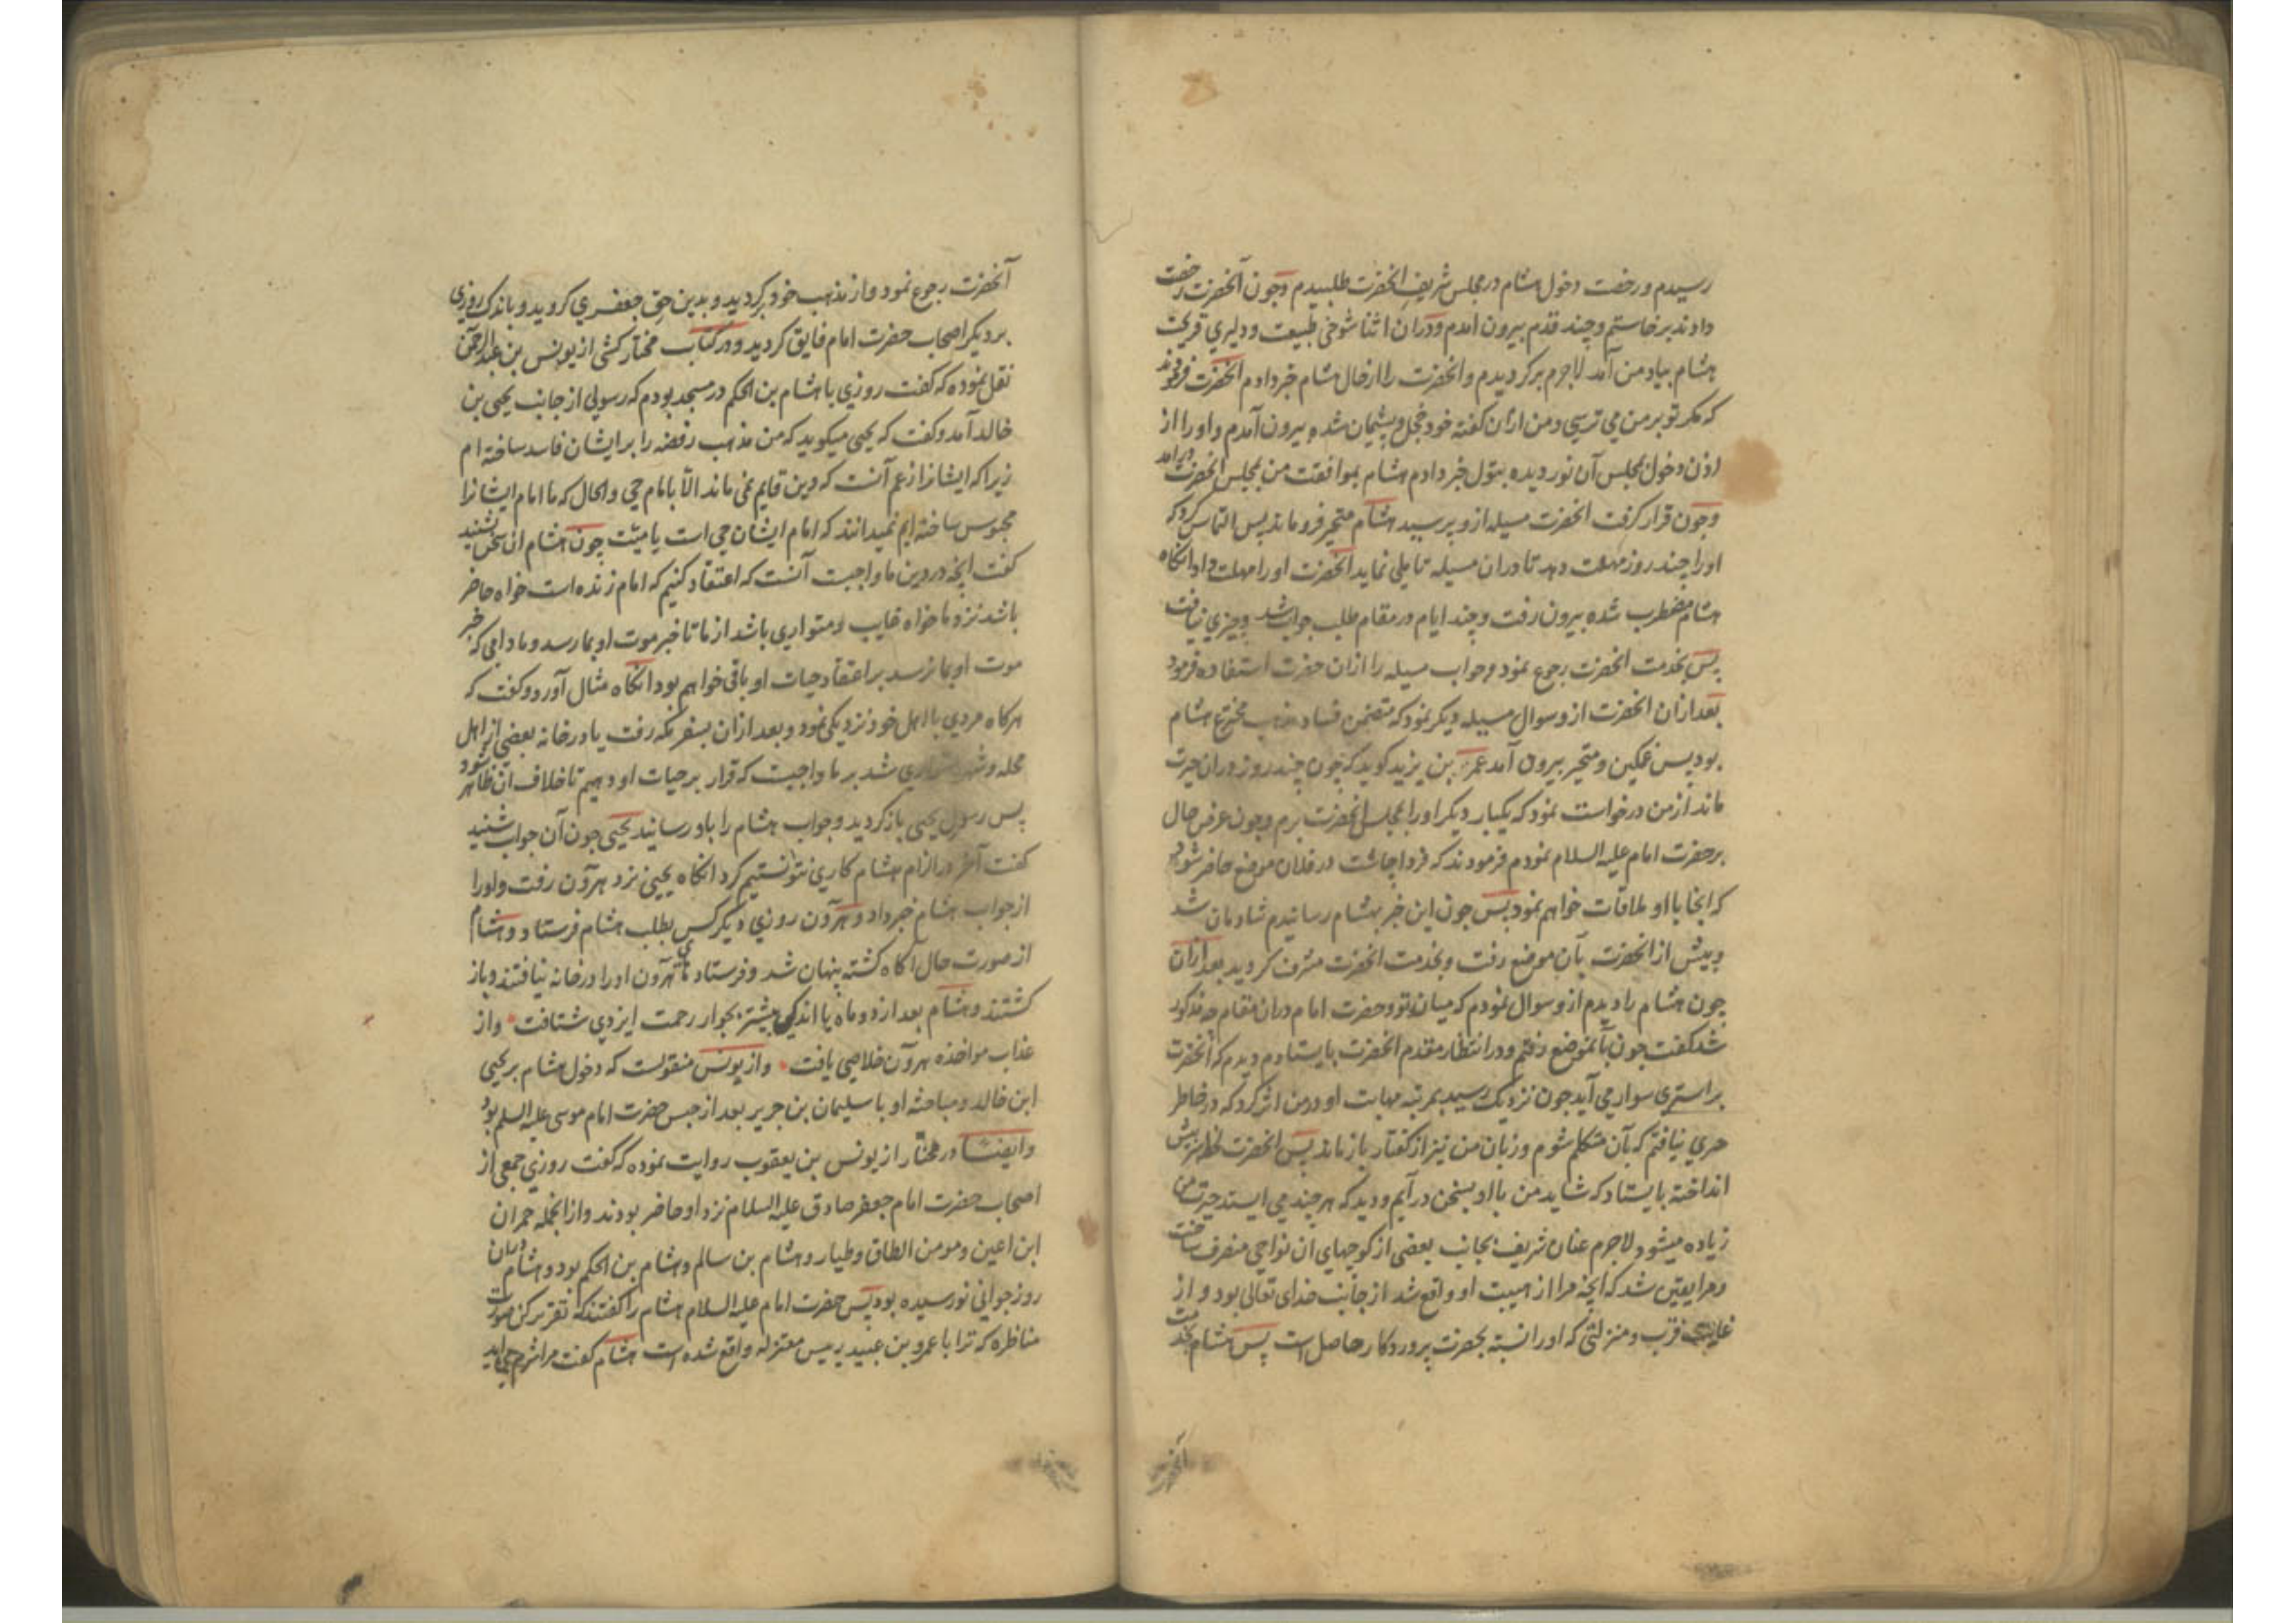 رسیدم و رخصت دخول هشام در مجلس شریف انحضرت طلبیدم و چون آنحضرت رخصت
دادند برخاستم و چند قدم بیرون امدم و در ان اثنا شوخی طبیعت و دلیری قریحت
هشام بیاد من آمد لاجرم برکردیدم و انحضرت را از حال هشام خبر دادم انحضرت فرمودند
که مکر تو بر من می ترسی و من از ان کفته خود خجل و پشیمان شده بیرون آمدم و او را از
اذن دخول مجلس آن نور دیده بتول خبر دادم هشام بموافقت من بمجلس انحضرت درامد
و چون قرار کرفت انحضرت مسیله ازو پرسید هشام متحیر فروماند پس التماس کرد که
او را چند روز مهلت دهد تا دران مسیله تاملی نماید انحضرت او را مهلت داد انکاه
هشام مضطرب شده بیرون رفت و چند ایام در مقام طلب جواب شد و چیزی نیافت
پس بخدمت انحضرت رجوع نمود و جواب مسیله را ازان حضرت استفاده فرمود
بعد ازان انحضرت ازو سوال مسیله دیکر نمود که متضمن فساد مذهب مخترع هشام
بود پس غمکین و متحیر بیرون آمد عمر بن یزید کوید که چون چند روز دران حیرت
ماند از من درخواست نمود که یکبار دیکر او را بمجلس انحضرت برم و چون عرض حال
بر حضرت امام علیه السلام نمودم فرمودند که فردا چاشت در فلان موضع حاضر شود
که انجا با او ملاقات خواهم نمود پس چون این خبر بهشام رسانیدم شادمان شد
و پیش از انحضرت بآن موضع رفت و بخدمت انحضرت مشرف کردید بعد ازان
چون هشام را دیدم ازو سوال نمودم که میان تو و حضرت امام دران مقام چه مذکور
شد کفت چون بآنموضع رفتم و در انتظار مقدم انحضرت بایستادم دیدم که انحضرت
بر استری سوار می آید چون نزدیک رسید بمرتبه مهابت او در من اثر کرد که در خاطر
حرفی نیافتم که بآن متکلم شوم و زبان من نیز از کفتار باز ماند پس انحضرت نظر در پیش
انداخته بایستاد که شاید من با او بسخن درآیم و دید که هر چند می ایستد حیرت من
زیاده میشود لاجرم عنان شریف بجانب بعضی از کوچهای ان نواحی منصرف ساخت
و مرا یقین شد که انچه مرا از هیبت او واقع شد از جانب خدای تعالی بود و از
غایت قرب و منزلتی که او را نسبة بحضرت پروردکار حاصل است پس هشام بخدمت
آنحضرت
آنحضرت رجوع نمود و از مذهب خود برکردید و بدین حق جعفری کروید و باندک روزی
بر دیکر اصحاب حضرت امام فایق کردید و در کتاب مختار کشی از یونس بن عبدالرحمن
نقل نموده که کفت روزی با هشام بن الحکم در مسجد بودم که رسولی از جانب یحیی بن
خالد آمد و کفت که یحیی میکوید که من مذهب رفضه را بر ایشان فاسد ساخته ام
زیرا که ایشانرا زعم آنست که دین قایم نمی ماند الا بامام حی و الحال که ما امام ایشانرا
محبوس ساخته ایم نمیدانند که امام ایشان حی است یا میت چون هشام ان سخن بشنید
کفت انچه در دین ما واجبت آنست که اعتقاد کنیم که امام زنده است خواه حاضر
باشد نزد ما خواه غایب و متواری باشد از ما تا خبر موت او بما رسد و مادامی که خبر
موت او بما نرسد بر اعتقاد حیات او باقی خواهیم بود انکاه مثال آورد و کفت که
هرکاه مردی با اهل خود نزدیکی نمود و بعد ازان بسفر مکه رفت یا در خانه بعضی از اهل
محله و شهر متواری شد بر ما واجبت که قرار بر حیات او دهیم تا خلاف ان ظاهر شود
پس رسول یحیی بازکردید و جواب هشام را باو رسانید یحیی چون آن جواب شنید
کفت آخر در الزام هشام کاری نتوانستیم کرد انکاه یحیی نزد هرون رفت و او را
از جواب هشام خبر داد و هرون روزی دیکر کس بطلب هشام فرستاد و هشام
از صورت حال اکاه کشته پنهان شد و فرستادهای هرون او را در خانه نیافتند و باز
کشتند و هشام بعد از دو ماه یا اندکی بیشتر بجوار رحمت ایزدی شتافت و از
عذاب مواخذه هرون خلاصی یافت و از یونس منقولست که دخول هشام بر یحیی
ابن خالد و مباحثه او با سلیمان بن جریر بعد از حبس حضرت امام موسی علیه السلم بود
و ایضا در مختار از یونس بن یعقوب روایت نموده که کفت روزی جمعی از
اصحاب حضرت امام جعفر صادق علیه السلام نزد او حاضر بودند و از انجمله حمران
ابن اعین و مومن الطاق و طیار و هشام بن سالم و هشام بن الحکم بود و هشام دران
روز جوانی نورسیده بود پس حضرت امام علیه السلام هشام را کفتند که تقریر کن صورت
مناظره که ترا با عمرو بن عبید رییس معتزله واقع شده است هشام کفت مرا شرم می اید